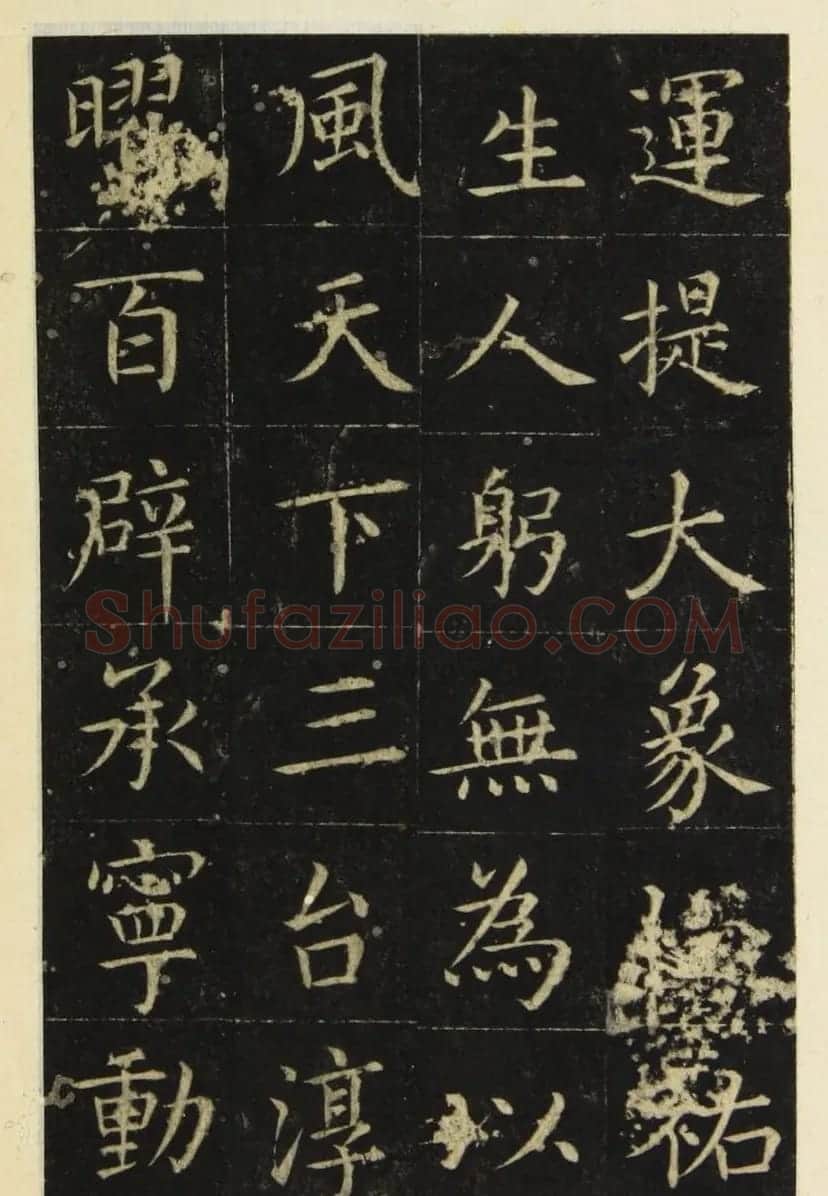 運提大象祐
生人躬無為以
風天下三台淳
曜百辟承寧動
Shufaziliao.COM